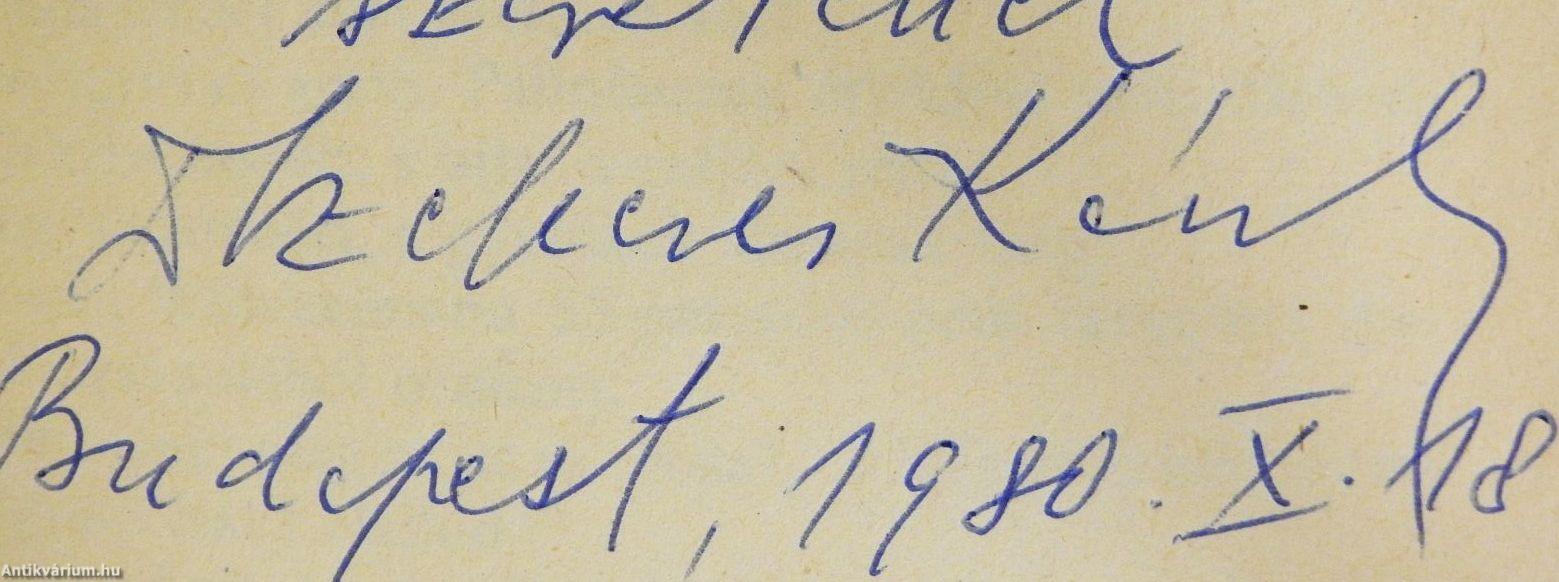 szeretettel
Szekeres Károly
Budapest, 1980. X. 18
Antikvárium.hu